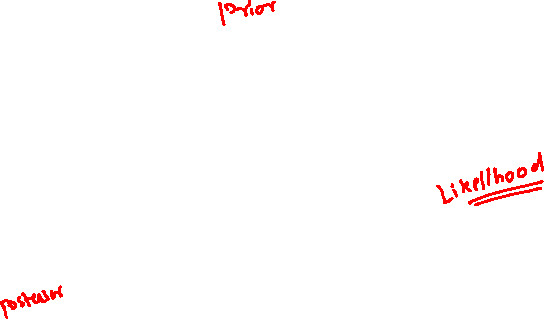 Prior
Likelihood
Posterior